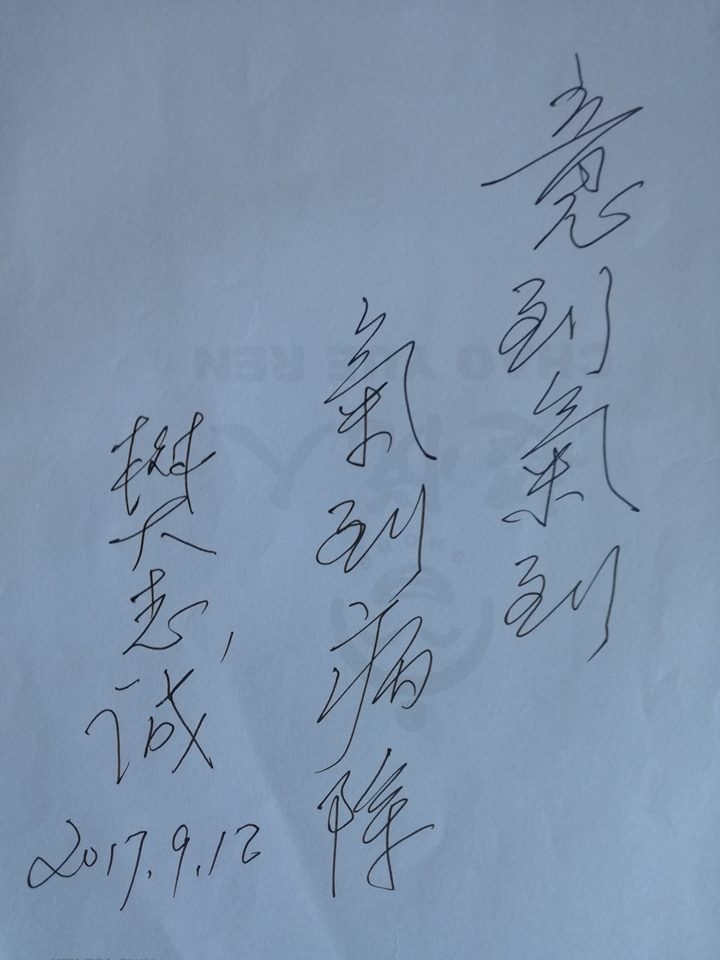 意到氣到
氣到病除
樊志诚
2017.9.12